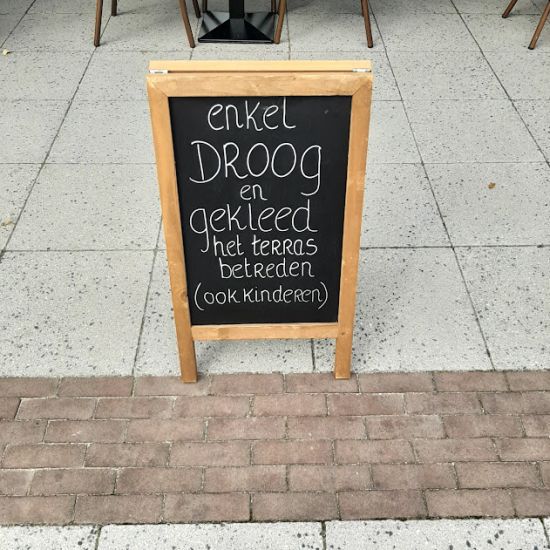 enkel
DROOG
en
gekleed
het terras
betreden
(ook kinderen)